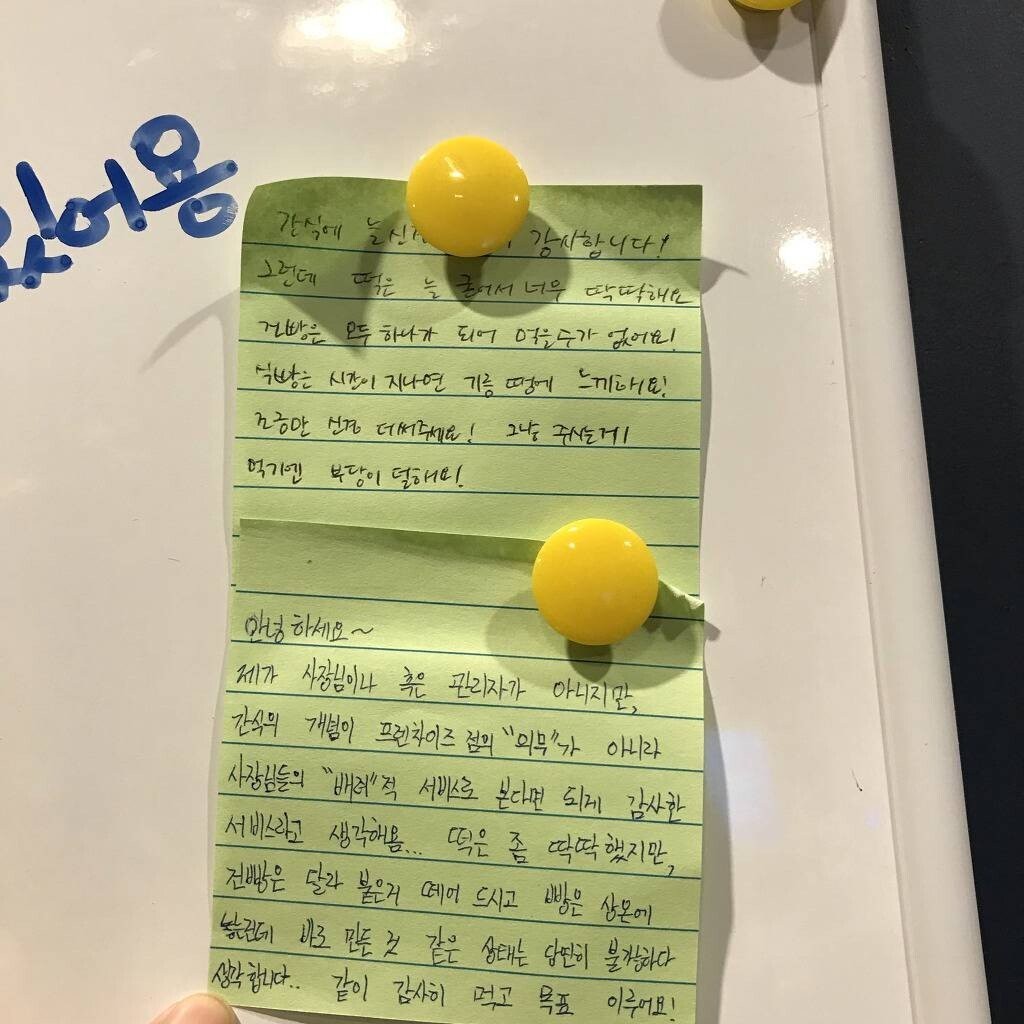 있어용
간식에 늘 신 감사합니다!
그런데 떡은 늘 굳어서 너무 딱딱해요
건빵은 모두 하나가 되어 먹을수가 없어요!
식빵은 시간이 지나면 기름 땜에 느끼해요!
조금만 신경 더써주세요! 그냥 주시는게
먹기엔 부담이 덜해요!
안녕하세요~
제가 사장님이나 혹은 관리자가 아니지만,
간식의 개념이 프렌차이즈 점의 "의무"가 아니라
사장님들의 "배려"적 서비스로 본다면 되게 감사한
서비스라고 생각해욤... 떡은 좀 딱딱했지만,
건빵은 달라 붙은거 떼어 드시고 빵은 상온에
놓는건데 바로 만든 것 같은 상태는 당연히 불가능하다
생각합니다.. 같이 감사히 먹고 목표 이루어요!